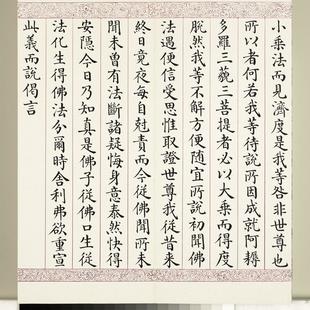 小乘法而見濟度是我等咎非世尊也
所以者何若我等待說所因成就阿耨
多羅三藐三菩提者必以大乘而得度
脫然我等不解方便隨宜所說初聞佛
法遇便信受思惟取證世尊我從昔來
終日竟夜每自剋責而今從佛聞所未
聞未曾有法斷諸疑悔身意泰然快得
安隱今日乃知真是佛子從佛口生從
法化生得佛法分爾時舍利弗欲重宣
此義而說偈言